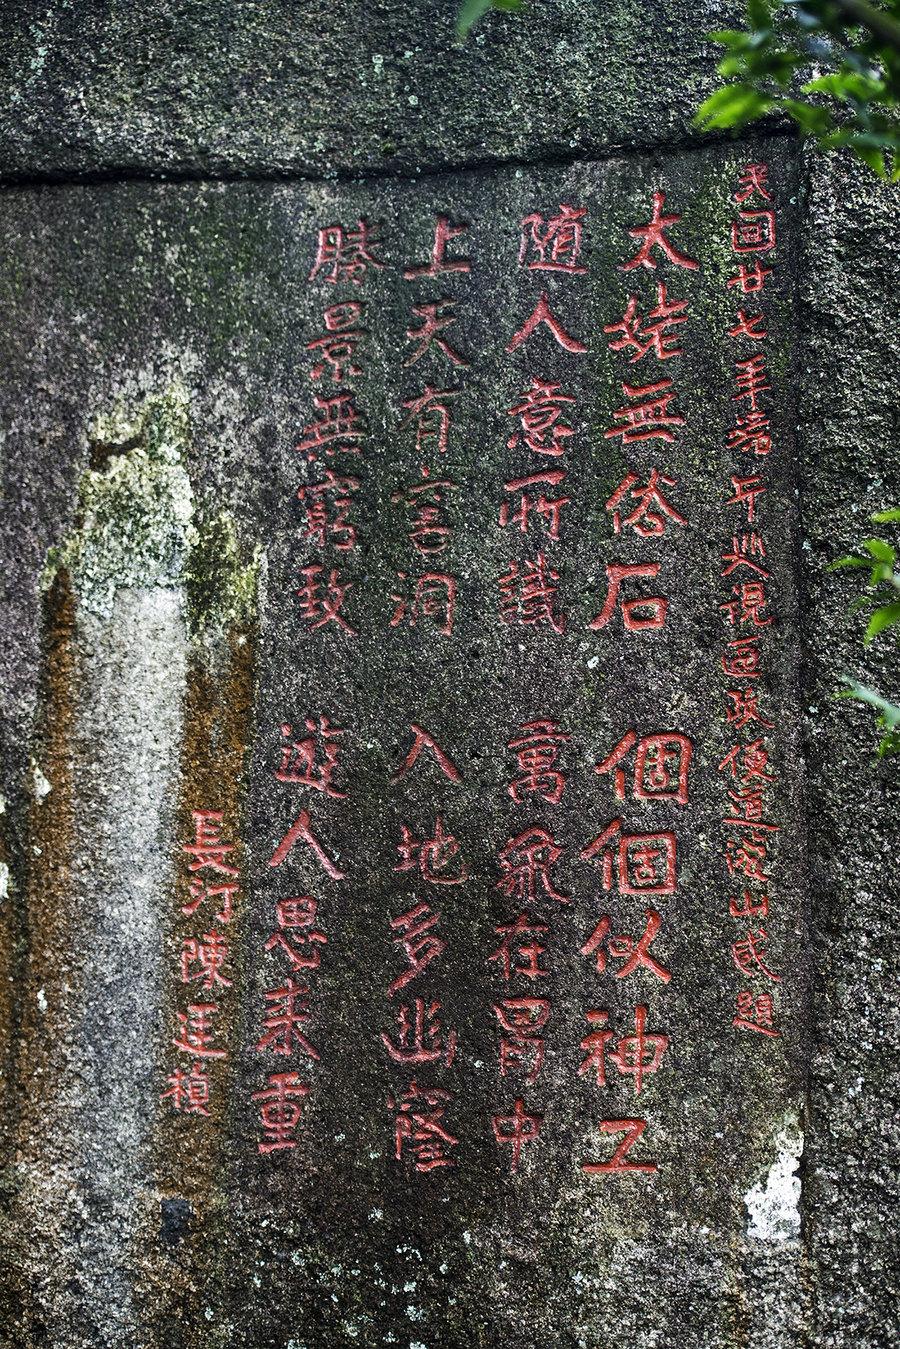 民國廿七年端午巡視區政便道山感題
太姥無俗石 個個似神工
隨人意所識 萬象在胷中
上天有洞 入地多幽窿
勝景無窮致 遊人思来重
長汀陳廷楨